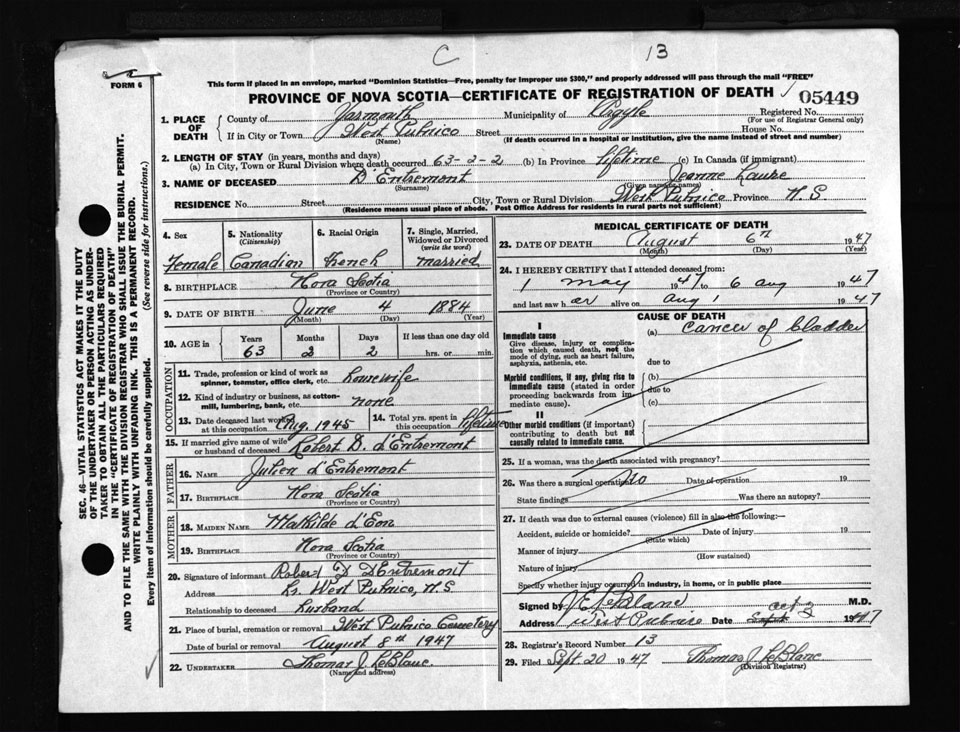 C 13
FORM 6
This form if placed in an envelope, marked "Dominion Statistics—Free, penalty for improper use $300," and properly addressed will pass through the mail "FREE"
PROVINCE OF NOVA SCOTIA—CERTIFICATE OF REGISTRATION OF DEATH
05449
1. PLACE OF DEATH
County of Yarmouth Municipality of Argyle Registered No.
(For use of Registrar General only)
If in City or Town West Pubnico Street House No.
(Name) (If death occurred in a hospital or institution, give the name instead of street and number)
2. LENGTH OF STAY (in years, months and days)
(a) In City, Town or Rural Division where death occurred 63-2-2 (b) In Province lifetime (c) In Canada (if immigrant)
3. NAME OF DECEASED D'Entremont Jeanne Laure
(Surname) (Given name or names)
RESIDENCE No. Street City, Town or Rural Division West Pubnico Province N.S.
(Residence means usual place of abode. Post Office Address for residents in rural parts not sufficient)
4. Sex
Female
5. Nationality
(Citizenship)
Canadian
6. Racial Origin
French
7. Single, Married, Widowed or Divorced
(write the word)
married
8. BIRTHPLACE Nova Scotia
(Province or Country)
9. DATE OF BIRTH June 4 1884
(Month) (Day) (Year)
10. AGE in Years Months Days If less than one day old
63 2 2 hrs. or min.
OCCUPATION
11. Trade, profession or kind of work as
spinner, teamster, office clerk, etc. housewife
12. Kind of industry or business, as cotton-
mill, lumbering, bank, etc. none
13. Date deceased last worked at this occupation Aug. 1945
14. Total yrs. spent in this occupation lifetime
15. If married give name of wife
or husband of deceased Robert D. d'Entremont
FATHER
16. NAME Julien d'Entremont
17. BIRTHPLACE Nova Scotia
(Province or Country)
MOTHER
18. MAIDEN NAME Mathilde d'Eon
19. BIRTHPLACE Nova Scotia
(Province or Country)
20. Signature of informant Robert D D'Entremont
Address Lr. West Pubnico, N.S.
Relationship to deceased husband
21. Place of burial, cremation or removal West Pubnico Cemetery
Date of burial or removal August 8th 1947
22. UNDERTAKER Thomas J. LeBlanc
(Name and address)
MEDICAL CERTIFICATE OF DEATH
23. DATE OF DEATH August 6th 1947
(Month) (Day)
24. I HEREBY CERTIFY that I attended deceased from:
1 May 1947 to 6 aug 1947
and last saw her alive on aug 1 1947
CAUSE OF DEATH
I
Immediate cause
Give disease, injury or complication which caused death, not the mode of dying, such as heart failure, asphyxia, asthenia, etc.
(a) cancer of bladder
due to
Morbid conditions, if any, giving rise to immediate cause (stated in order proceeding backwards from immediate cause).
(b)
due to
(c)
II
Other morbid conditions (if important) contributing to death but not causally related to immediate cause.
25. If a woman, was the death associated with pregnancy?
26. Was there a surgical operation? No Date of operation 19
State findings Was there an autopsy?
27. If death was due to external causes (violence) fill in also the following:—
Accident, suicide or homicide? Date of injury 19
(State which)
Manner of injury
(How sustained)
Nature of injury
Specify whether injury occurred in industry, in home, or in public place
Signed by J E LeBlanc M.D.
Address West Pubnico Date 1947
28. Registrar's Record Number 13
29. Filed Sept. 20 1947 Thomas J. LeBlanc
(Division Registrar)
SEC. 46—VITAL STATISTICS ACT MAKES IT THE DUTY
OF THE UNDERTAKER OR PERSON ACTING AS UNDER-
TAKER TO OBTAIN ALL THE PARTICULARS REQUIRED
IN THE "CERTIFICATE OF REGISTRATION OF DEATH"
AND TO FILE THE SAME WITH THE DIVISION REGISTRAR WHO SHALL ISSUE THE BURIAL PERMIT.
WRITE PLAINLY WITH UNFADING INK. THIS IS A PERMANENT RECORD.
Every item of information should be carefully supplied. (See reverse side for instructions.)